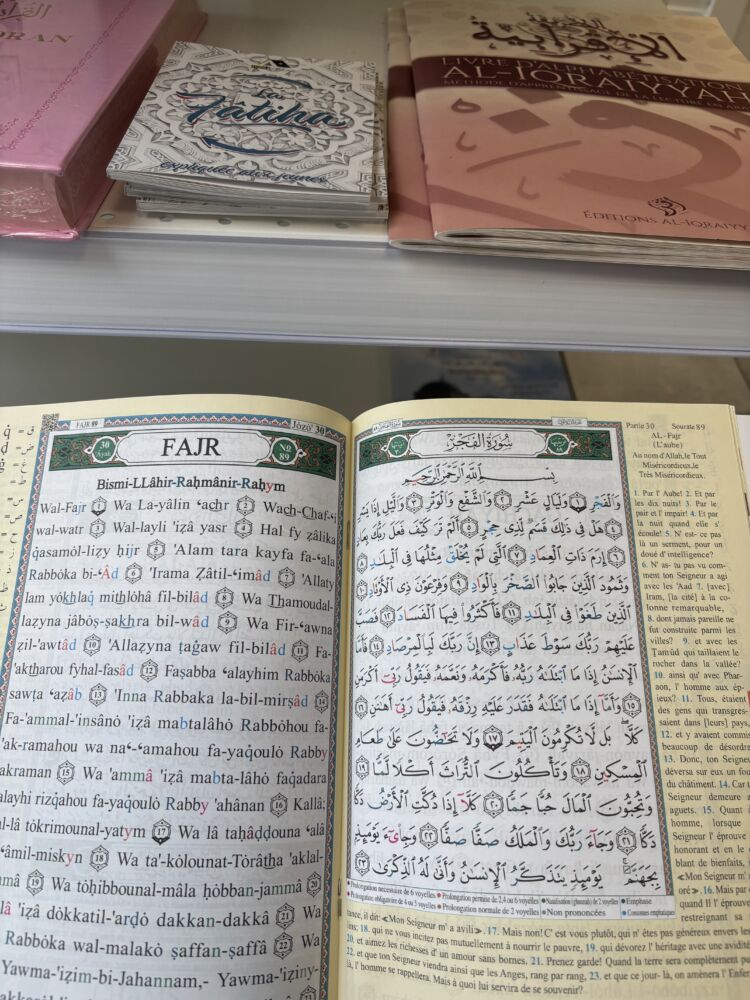 ORAN
La
Fâtiha
expliquée aux jeunes
LIVRE D'ALPHABÉTISATION
AL-IQRAIYYAH
ÉDITIONS AL-IQRAIYY
FAJR 89
Jozò' 30
30
Ayah
FAJR
No
89
Bismi-LLâhir-Raḥmânir-Raḥym
Wal-Fajr 1 Wa La-yâlin ʻachr 2 Wach-Chaf-ʻi
wal-watr 3 Wal-layli 'iẓâ yasr 4 Hal fy ẓâlika
qasamòl-liẓy ḥijr 5 'Alam tara kayfa fa-ʻala
Rabbòka bi-ʻÂd 6 'Irama Ẓâtil-ʻimâd 7 'Allaty
lam yòkhlaq mithlòhâ fil-bilâd 8 Wa Thamoudal-
laẓyna jâbòṣ-ṣakhra bil-wâd 9 Wa Fir-ʻawna
ẓil-'awtâd 10 'Allaẓyna ṭaġaw fil-bilâd 11 Fa-
'aktharou fyhal-fasâd 12 Faṣabba ʻalayhim Rabbòka
sawṭa ʻaẓâb 13 'Inna Rabbaka la-bil-mirṣâd 14
Fa-'ammal-'insânò 'iẓâ mabtalâhò Rabbòhou fa-
'ak-ramahou wa naʻ-ʻamahou fa-yaqoulò Rabby
akraman 15 Wa 'ammâ 'iẓâ mabta-lâhò faqadara
alayhi rizqahou fa-yaqoulò Rabby 'ahânan 16 Kallâ;
l-lâ tòkrimounal-yatym 17 Wa lâ taḥâḍḍouna ʻalâ
ʻâmil-miskyn 18 Wa ta'-kòlounat-Tòrâtha 'aklal-
mmâ 19 Wa tòḥibbounal-mâla ḥòbban-jammâ 20
lâ 'iẓâ dòkkatil-'arḍò dakkan-dakkâ 21 Wa
Rabbòka wal-malakò ṣaffan-ṣaffâ 22 Wa
Yawma-'iẓim-bi-Jahannam,- Yawma-'iẓiny-
سُورَةُ الفَجْرِ
بِسْمِ اللَّهِ الرَّحْمَٰنِ الرَّحِيمِ
وَالْفَجْرِ ١ وَلَيَالٍ عَشْرٍ ٢ وَالشَّفْعِ وَالْوَتْرِ ٣ وَالَّيْلِ إِذَا يَسْرِ
٤ هَلْ فِي ذَٰلِكَ قَسَمٌ لِّذِي حِجْرٍ ٥ أَلَمْ تَرَ كَيْفَ فَعَلَ رَبُّكَ بِعَادٍ
٦ إِرَمَ ذَاتِ الْعِمَادِ ٧ الَّتِي لَمْ يُخْلَقْ مِثْلُهَا فِي الْبِلَٰدِ ٨
وَثَمُودَ الَّذِينَ جَابُوا الصَّخْرَ بِالْوَادِ ٩ وَفِرْعَوْنَ ذِي الْأَوْتَادِ ١٠
الَّذِينَ طَغَوْا فِي الْبِلَٰدِ ١١ فَأَكْثَرُوا فِيهَا الْفَسَادَ ١٢ فَصَبَّ
عَلَيْهِمْ رَبُّكَ سَوْطَ عَذَابٍ ١٣ إِنَّ رَبَّكَ لَبِالْمِرْصَادِ ١٤ فَأَمَّا
الْإِنسَٰنُ إِذَا مَا ابْتَلَىٰهُ رَبُّهُ فَأَكْرَمَهُ وَنَعَّمَهُ فَيَقُولُ رَبِّي أَكْرَمَنِ
١٥ وَأَمَّا إِذَا مَا ابْتَلَىٰهُ فَقَدَرَ عَلَيْهِ رِزْقَهُ فَيَقُولُ رَبِّي أَهَٰنَنِ ١٦
كَلَّا بَل لَّا تُكْرِمُونَ الْيَتِيمَ ١٧ وَلَا تَحَٰضُّونَ عَلَىٰ طَعَامِ
الْمِسْكِينِ ١٨ وَتَأْكُلُونَ التُّرَاثَ أَكْلًا لَّمًّا ١٩
وَتُحِبُّونَ الْمَالَ حُبًّا جَمًّا ٢٠ كَلَّا إِذَا دُكَّتِ الْأَرْضُ دَكًّا
دَكًّا ٢١ وَجَاءَ رَبُّكَ وَالْمَلَكُ صَفًّا صَفًّا ٢٢ وَجِايءَ يَوْمَئِذٍ
بِجَهَنَّمَ يَوْمَئِذٍ يَتَذَكَّرُ الْإِنسَٰنُ وَأَنَّىٰ لَهُ الذِّكْرَىٰ ٢٣
Prolongation nécessaire de 6 voyelles Prolongation permise de 2,4 ou 6 voyelles Nasalisation (ghunnah) de 2 voyelles Emphase
Prolongation obligatoire de 4 ou 5 voyelles Prolongation normale de 2 voyelles Non prononcées Consonnes emphatiques
Partie 30 Sourate 89
AL-Fajr
(L'aube)
Au nom d'Allah,le Tout
Miséricordieux,le
Très Miséricordieux.
1. Par l' Aube! 2. Et par
les dix nuits! 3. Par le
pair et l' impair! 4. Et par
la nuit quand elle s'
écoule! 5. N' est- ce pas
là un serment, pour un
doué d' intelligence?
6. N' as- tu pas vu com-
ment ton Seigneur a agi
avec les 'Aad 7. [avec]
Iram, [la cité] à la co-
lonne remarquable,
8. dont jamais pareille ne
fut construite parmi les
villes? 9. et avec les
Tamūd qui taillaient le
rocher dans la vallée?
10. ainsi qu' avec Phar-
aon, l' homme aux ép-
ieux? 11. Tous, étaient
des gens qui transgres-
saient dans [leurs] pays,
12. et y avaient commis
beaucoup de désordre
13. Donc, ton Seigneur
déversa sur eux un fou
du châtiment. 14. Car t
Seigneur demeure a
aguets. 15. Quant
homme, lorsque
Seigneur l' éprouve
honorant et en le c
blant de bienfaits,
«Mon Seigneur m'
oré». 16. Mais par
quand Il l' éprouve
restreignant sa
tance, il dit: «Mon Seigneur m' a avili». 17. Mais non! C' est vous plutôt, qui n' êtes pas généreux envers les
ins: 18. qui ne vous incitez pas mutuellement à nourrir le pauvre, 19. qui dévorez l' héritage avec une avidité
20. et aimez les richesses d' un amour sans bornes. 21. Prenez garde! Quand la terre sera complètement pu
22. et que ton Seigneur viendra ainsi que les Anges, rang par rang, 23. et que ce jour- là, on amènera l' Enfer
là, l' homme se rappellera. Mais à quoi lui servira de se souvenir?